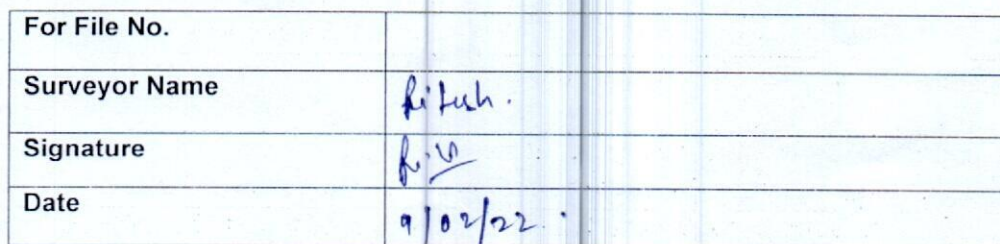 For File No.
Surveyor Name Ritesh.
Signature
Date 9/02/22.